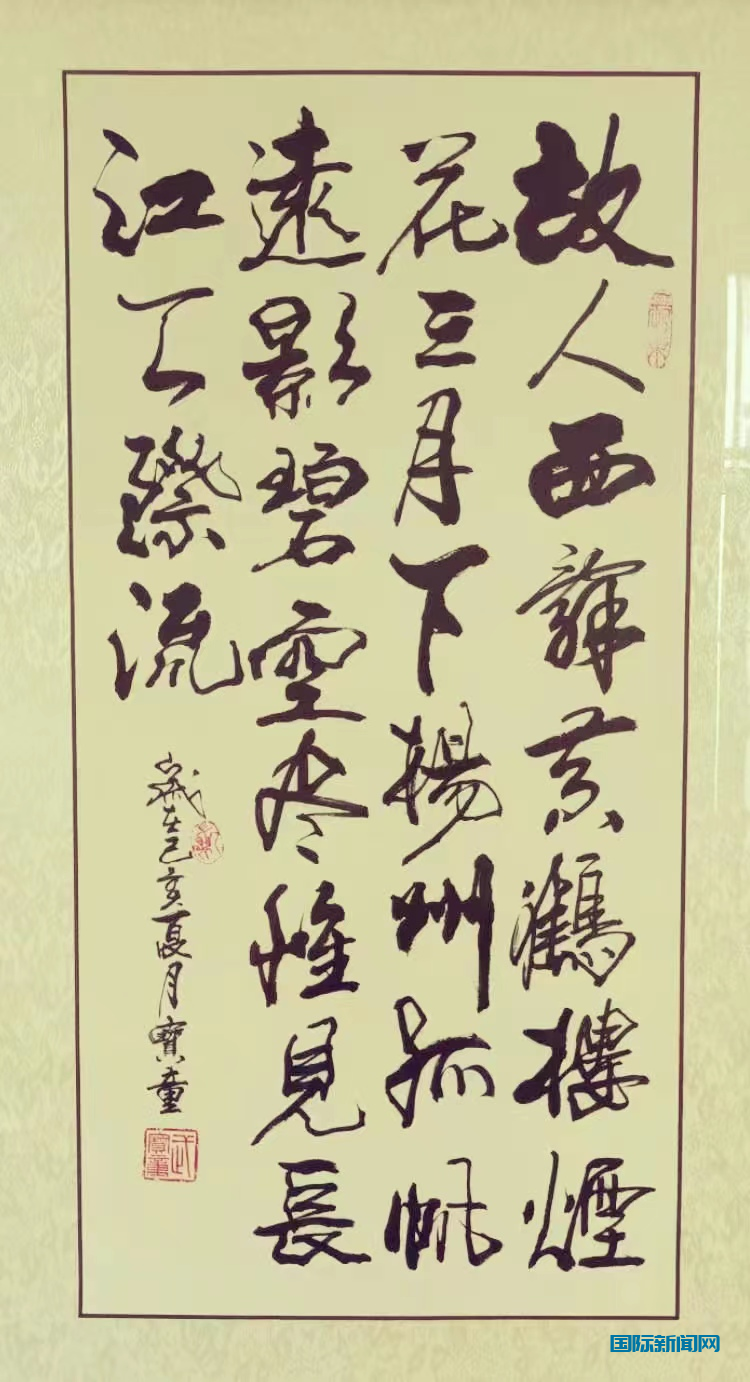 故人西辭黄鶴樓煙
花三月下揚州孤帆
遠影碧空尽惟見長
江天際流
歲在己亥夏月寶童
国际新闻网